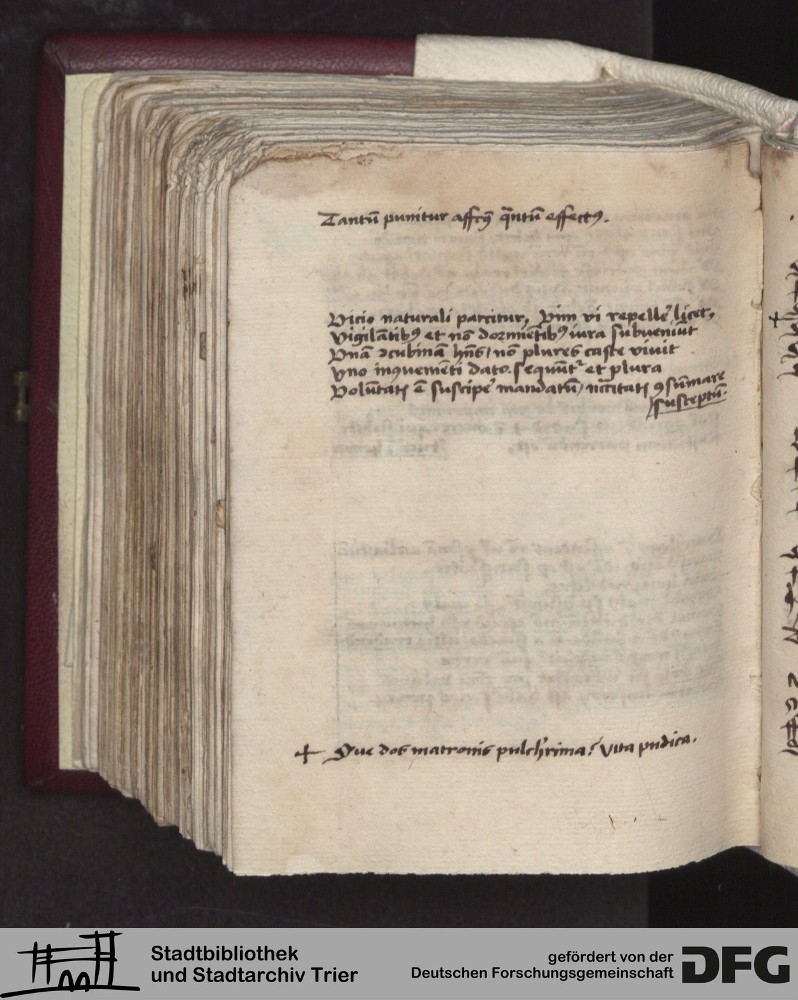 Tantū punitur affectꝯ q̄ntū effectꝯ.
Vicio naturali parcitur, Vim vi repellē licet,
Vigilātibꝯ et nō dormiētibꝯ iura subueniūt
Vnā ꝯcubinā hn̄s / nō plures caste viuit
Vno inꝯuenieti dato. sequūtr̄ et plura
Volūtatꝭ ē suscipē mandatū / nc̄citatꝭ ꝯsūmare
susceptū.
+ Que dos matronis pulcherrima? vita pudica.
Stadtbibliothek
und Stadtarchiv Trier
gefördert von der
Deutschen Forschungsgemeinschaft
DFG